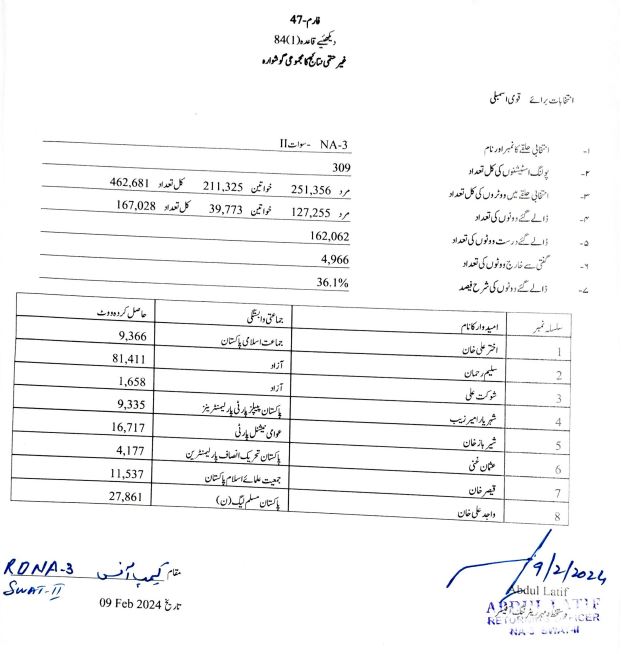 فارم-47
دیکھئیے قاعدہ (1)84
غیر حتمی نتائج کا مجموعی گوشوارہ
انتخابات برائے قومی اسمبلی
۱- انتخابی حلقے کا نمبر اور نام NA-3 -سوات II
۲- پولنگ اسٹیشنوں کی کل تعداد 309
۳- انتخابی حلقے میں ووٹروں کی کل تعداد مرد 251,356 خواتین 211,325 کل تعداد 462,681
۴- ڈالے گئے ووٹوں کی تعداد مرد 127,255 خواتین 39,773 کل تعداد 167,028
۵- ڈالے گئے درست ووٹوں کی تعداد 162,062
۶- گنتی سے خارج ووٹوں کی تعداد 4,966
۷- ڈالے گئے ووٹوں کی شرح فیصد 36.1%
سلسلہ نمبر امیدوار کا نام جماعتی وابستگی حاصل کردہ ووٹ
1 اختر علی خان جماعت اسلامی پاکستان 9,366
2 سلیم رحمان آزاد 81,411
3 شوکت علی آزاد 1,658
4 شہریار امیر زیب پاکستان پیپلز پارٹی پارلیمنٹیرینز 9,335
5 شیر باز خان عوامی نیشنل پارٹی 16,717
6 عثمان غنی پاکستان تحریک انصاف پارلیمنٹرین 4,177
7 قیصر خان جمعیت علمائے اسلام پاکستان 11,537
8 واجد علی خان پاکستان مسلم لیگ (ن) 27,861
مقام کیمپ آفس RONA-3
SWAT-II
تاریخ 09 Feb 2024
9/2/2024
Abdul Latif
ABDUL LATIF
RETURNING OFFICER
NA-3 SWAT-II